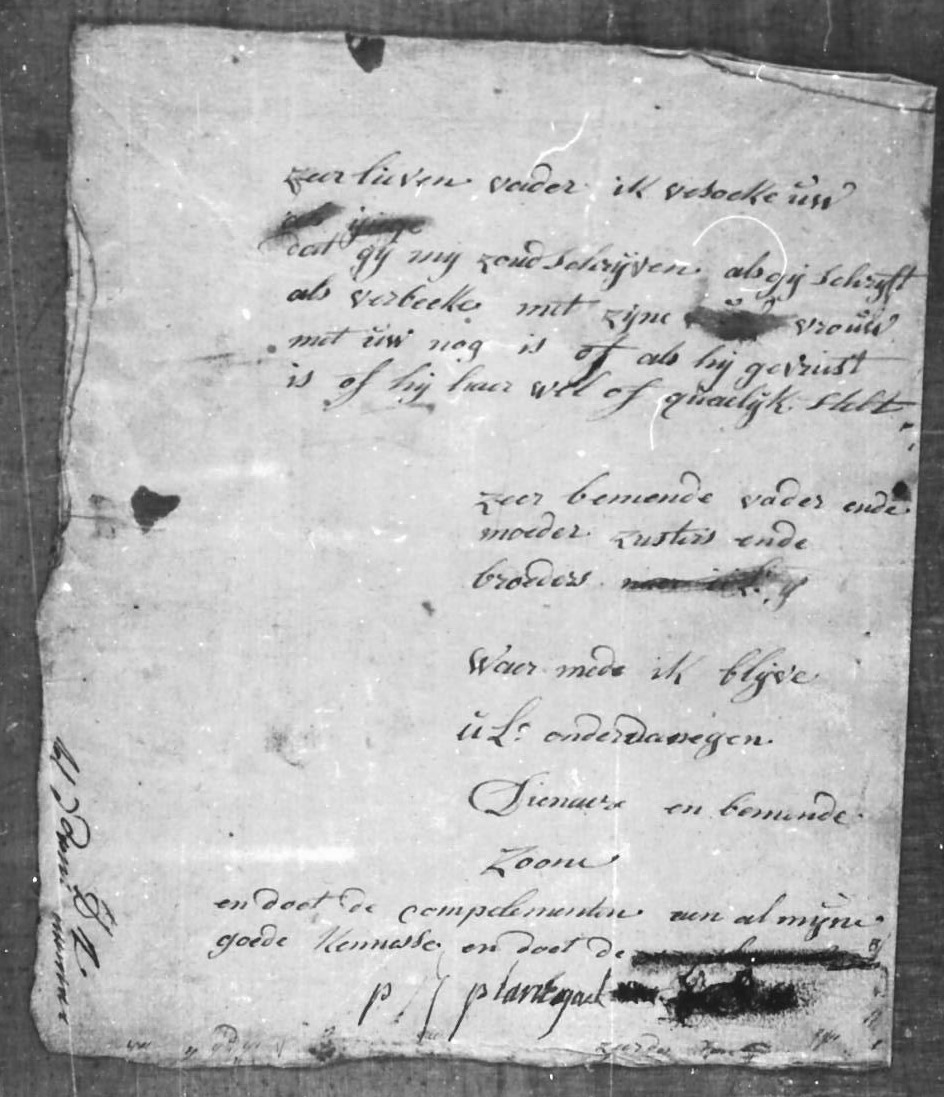 zeer lieven vader ik vesoeke üw
dat gij mij zoud schrijven als gij schryft
als verbeeke met zijne vrouw
met üw nog is of als hij gevriist
is of hij haer wel of quaelijk stelt
zeer bemende vader ende
moeder zusters ende
broeders
Waer mede ik blijve
ü L. onderdanegen
Dienaere en bemende
Zoone
en doet de compelementen aen al mijne
goede kennesse en doet de
p J plankgaet